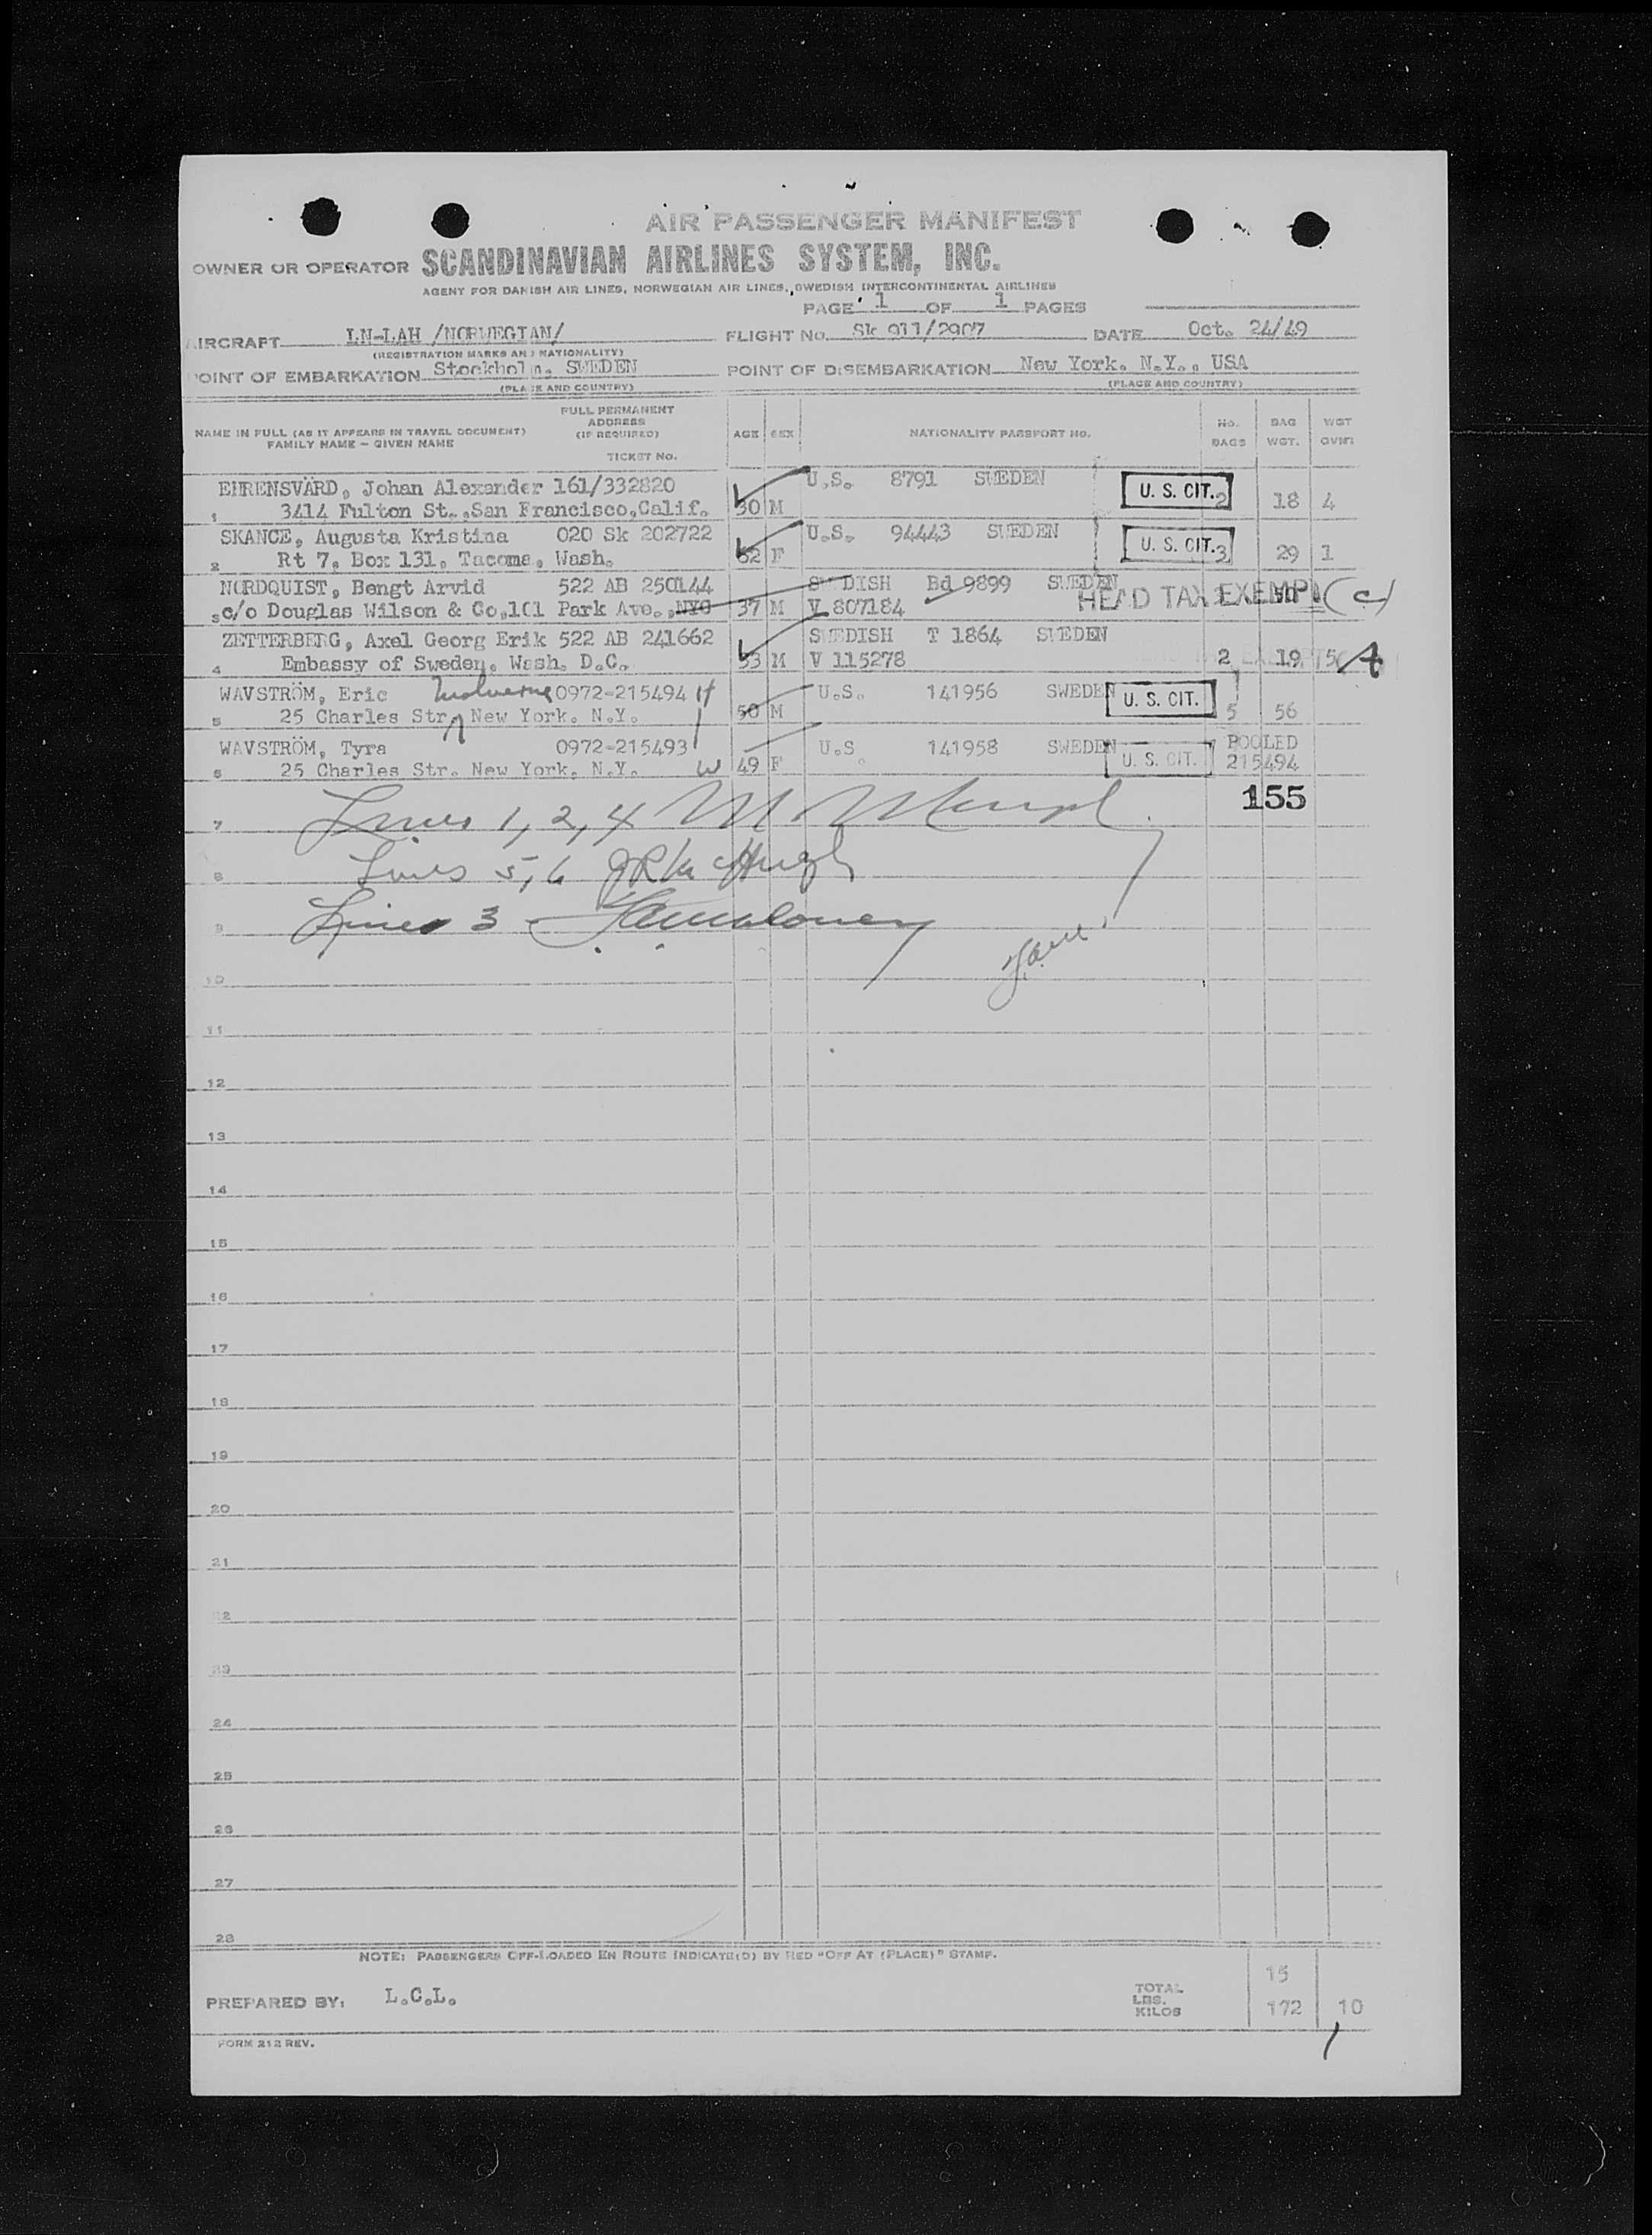 AIR PASSENGER MANIFEST
OWNER OR OPERATOR SCANDINAVIAN AIRLINES SYSTEM, INC.
AGENT FOR DANISH AIR LINES, NORWEGIAN AIR LINES, SWEDISH INTERCONTINENTAL AIRLINES
PAGE 1 OF 1 PAGES
AIRCRAFT LN-LAH /NORWEGIAN/ FLIGHT No. Sk 911/2907 DATE Oct. 24/49
(REGISTRATION MARKS AND NATIONALITY)
POINT OF EMBARKATION Stockholm. SWEDEN POINT OF DISEMBARKATION New York. N.Y., USA
(PLACE AND COUNTRY) (PLACE AND COUNTRY)
NAME IN FULL (AS IT APPEARS IN TRAVEL DOCUMENT) FAMILY NAME – GIVEN NAME FULL PERMANENT ADDRESS (IF REQUIRED) TICKET No. AGE SEX NATIONALITY PASSPORT NO. No. BAGS BAG WGT. WGT OVWT
EHRENSVÄRD, Johan Alexander 161/332820 U.S. 8791 SWEDEN U. S. CIT.
1 3414 Fulton St.,San Francisco,Calif. 30 M 2 18 4
SKANCE, Augusta Kristina 020 Sk 202722 U.S. 94443 SWEDEN U. S. CIT.
2 Rt 7, Box 131, Tacoma, Wash. 62 F 3 29 1
NORDQUIST, Bengt Arvid 522 AB 250144 SWEDISH Bd 9899 SWEDEN
3 c/o Douglas Wilson & Co,101 Park Ave.,NYC 37 M V 807184 HEAD TAX EXEMPT (c)
ZETTERBERG, Axel Georg Erik 522 AB 241662 SWEDISH T 1864 SWEDEN
4 Embassy of Sweden, Wash. D.C. 53 M V 115278 2 19 5 A
WAVSTRÖM, Eric 0972-215494 H U.S. 141956 SWEDEN U. S. CIT.
5 25 Charles Str. New York. N.Y. 50 M 5 56
WAVSTRÖM, Tyra 0972-215493 U.S 141958 SWEDEN POOLED
6 25 Charles Str. New York. N.Y. W 49 F U. S. CIT. 215494
155
7 Lines 1, 2, 4
8 Lines 5, 6
9 Lines 3
10
11
12
13
14
15
16
17
18
19
20
21
22
23
24
25
26
27
28
NOTE: PASSENGERS OFF-LOADED EN ROUTE INDICATE(D) BY RED "OFF AT (PLACE)" STAMP.
15
PREPARED BY: L.C.L. TOTAL LBS. KILOS 172 10
FORM 212 REV.